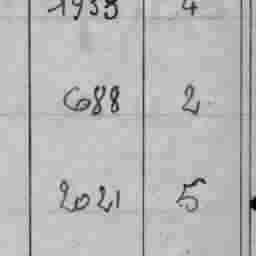 1933 4
688 2
2021 5